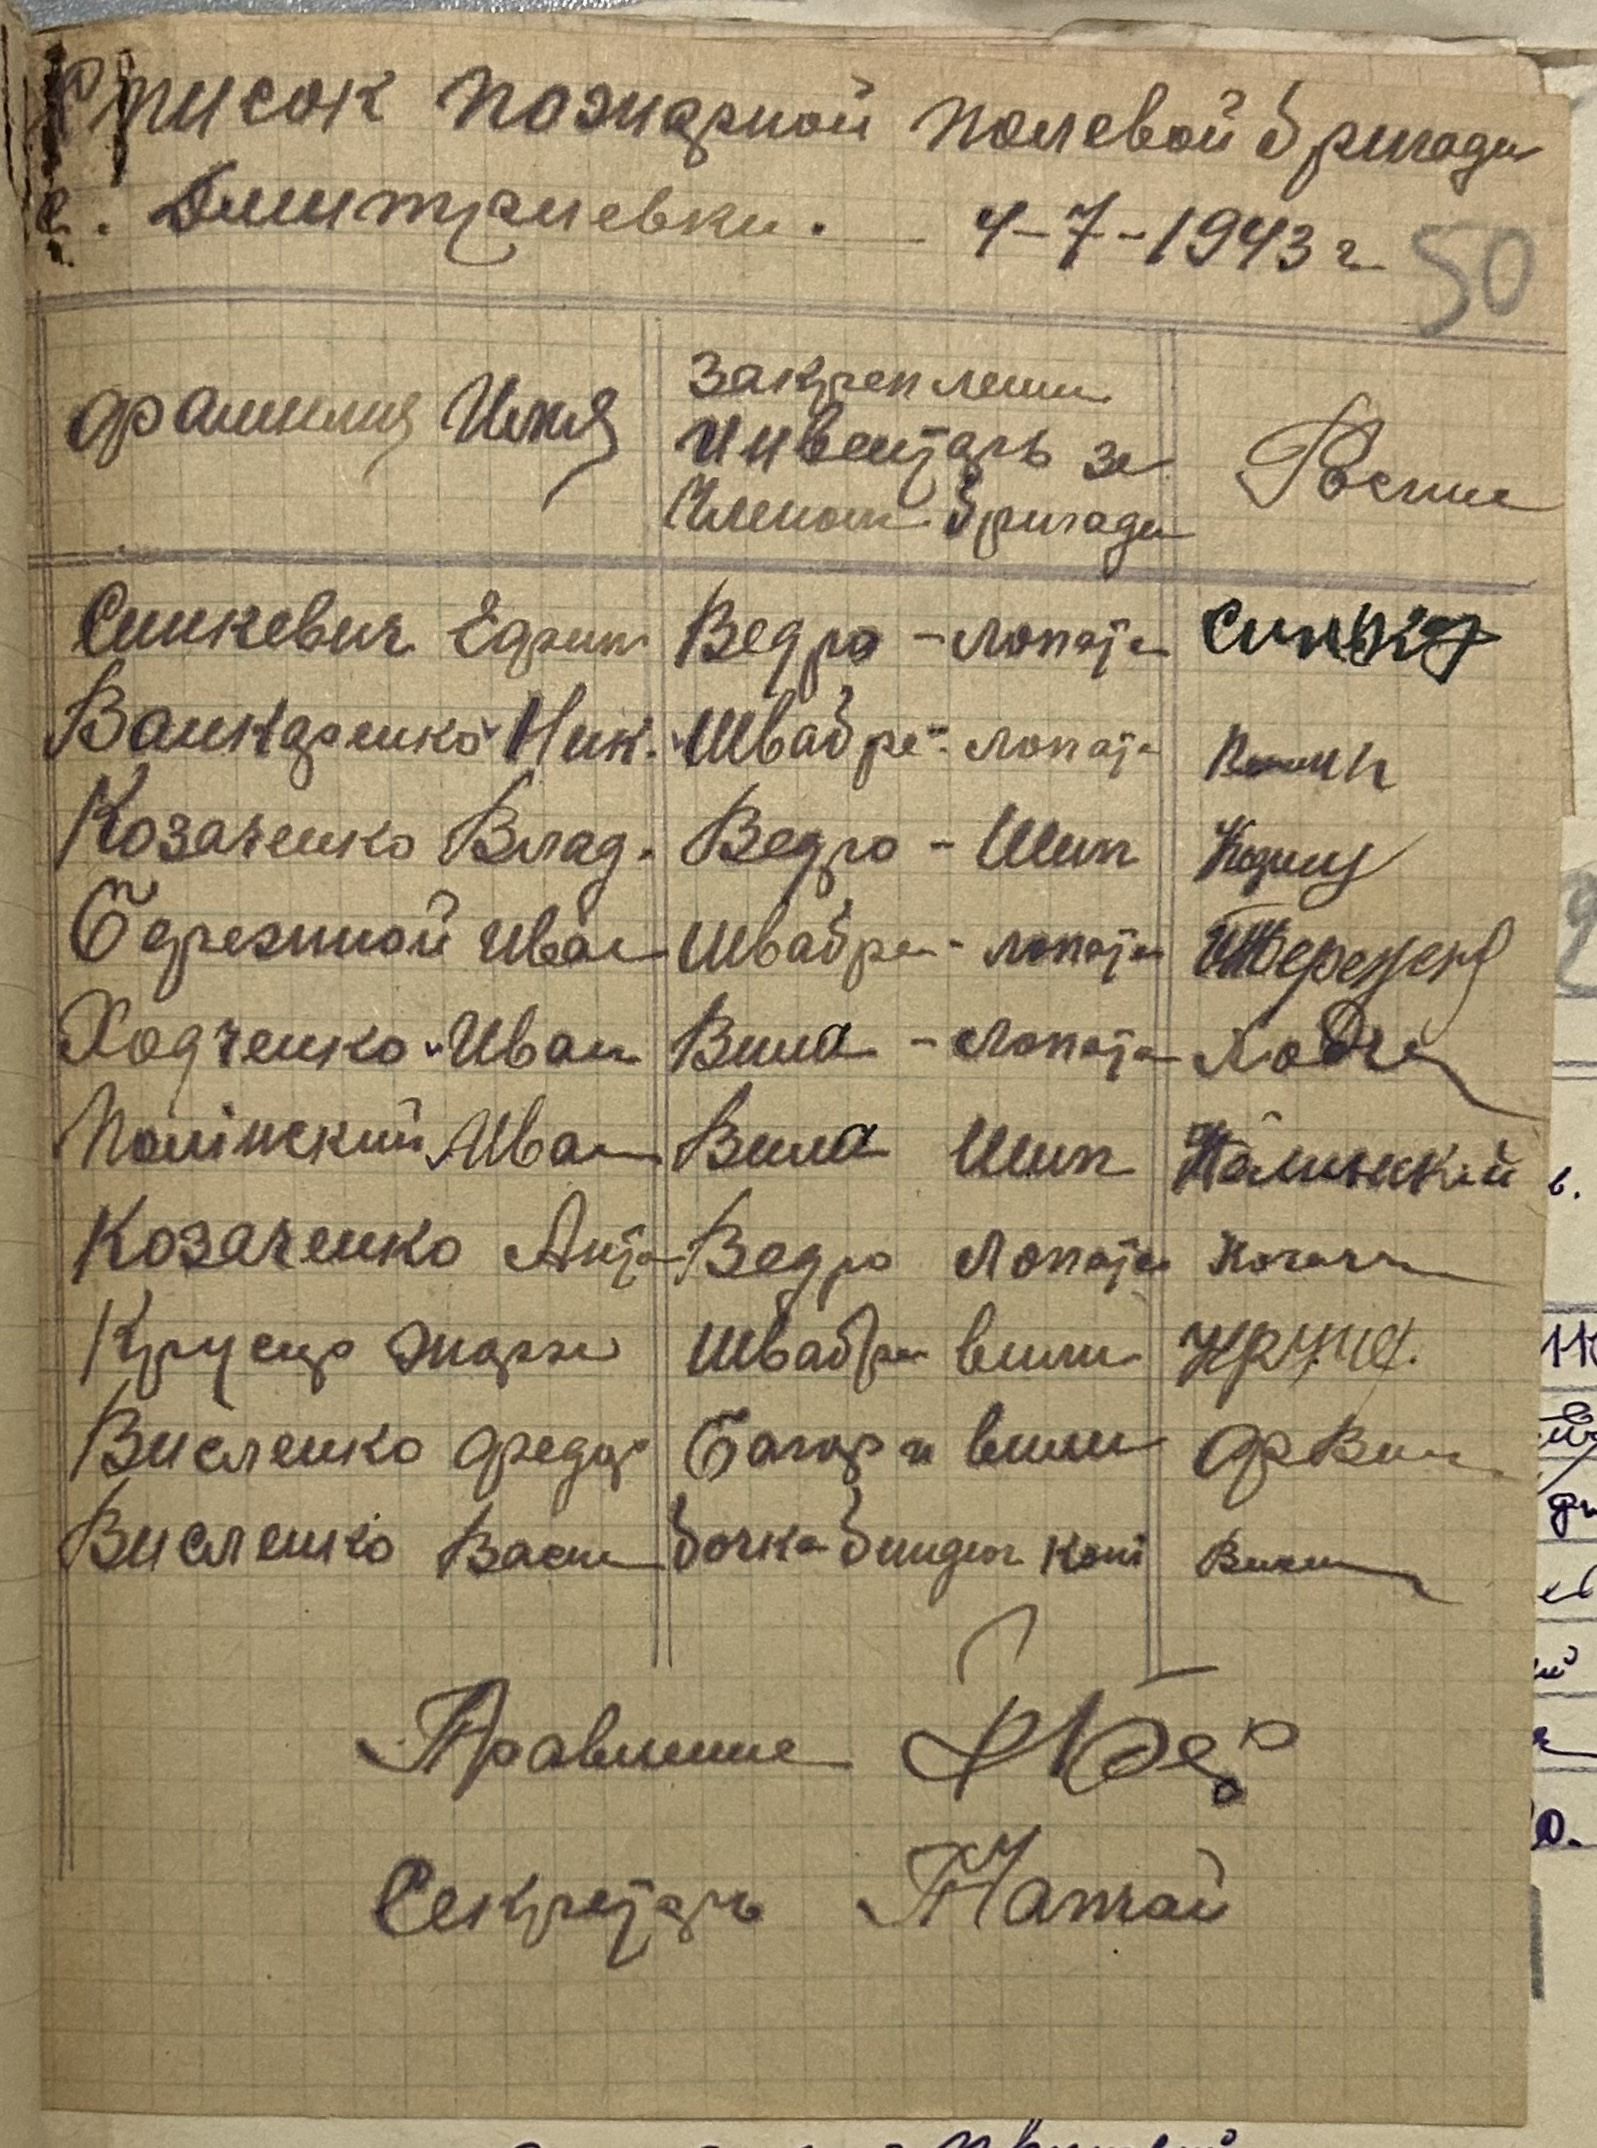 Список пожарной полевой бригади
с. Дмитриевки. 4-7-1943 г. 50
Фамилия Имя
Закреплени
Инвентарь за
Членом бригади
Роспис
Синкевич Ефим Ведро - лопата Синьк
Ник. Швабра - лопата
Козаченко Влад. Ведро - Шип
Бережной Иван Швабра - лопата Бережн
Ходченко Иван Вила - лопата Ходче
Полінский Иван Вила Шип Полинский
Козаченко Анта Ведро лопата Козач
Швабра вили
Висленко Федор Багор и вили Ф Вис
Висленко Васи бочка коні Висл
Правление
Секретарь